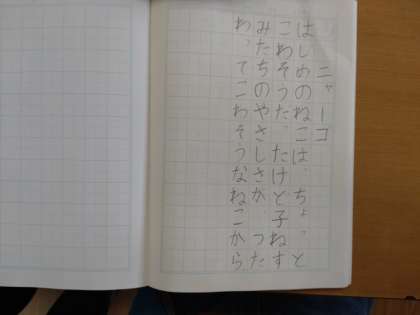 ニャーコ
はじめのねこは、ちょっと
こわそうだ。だけど子ねず
みたちのやさしさが、つた
わってこわそうなねこから